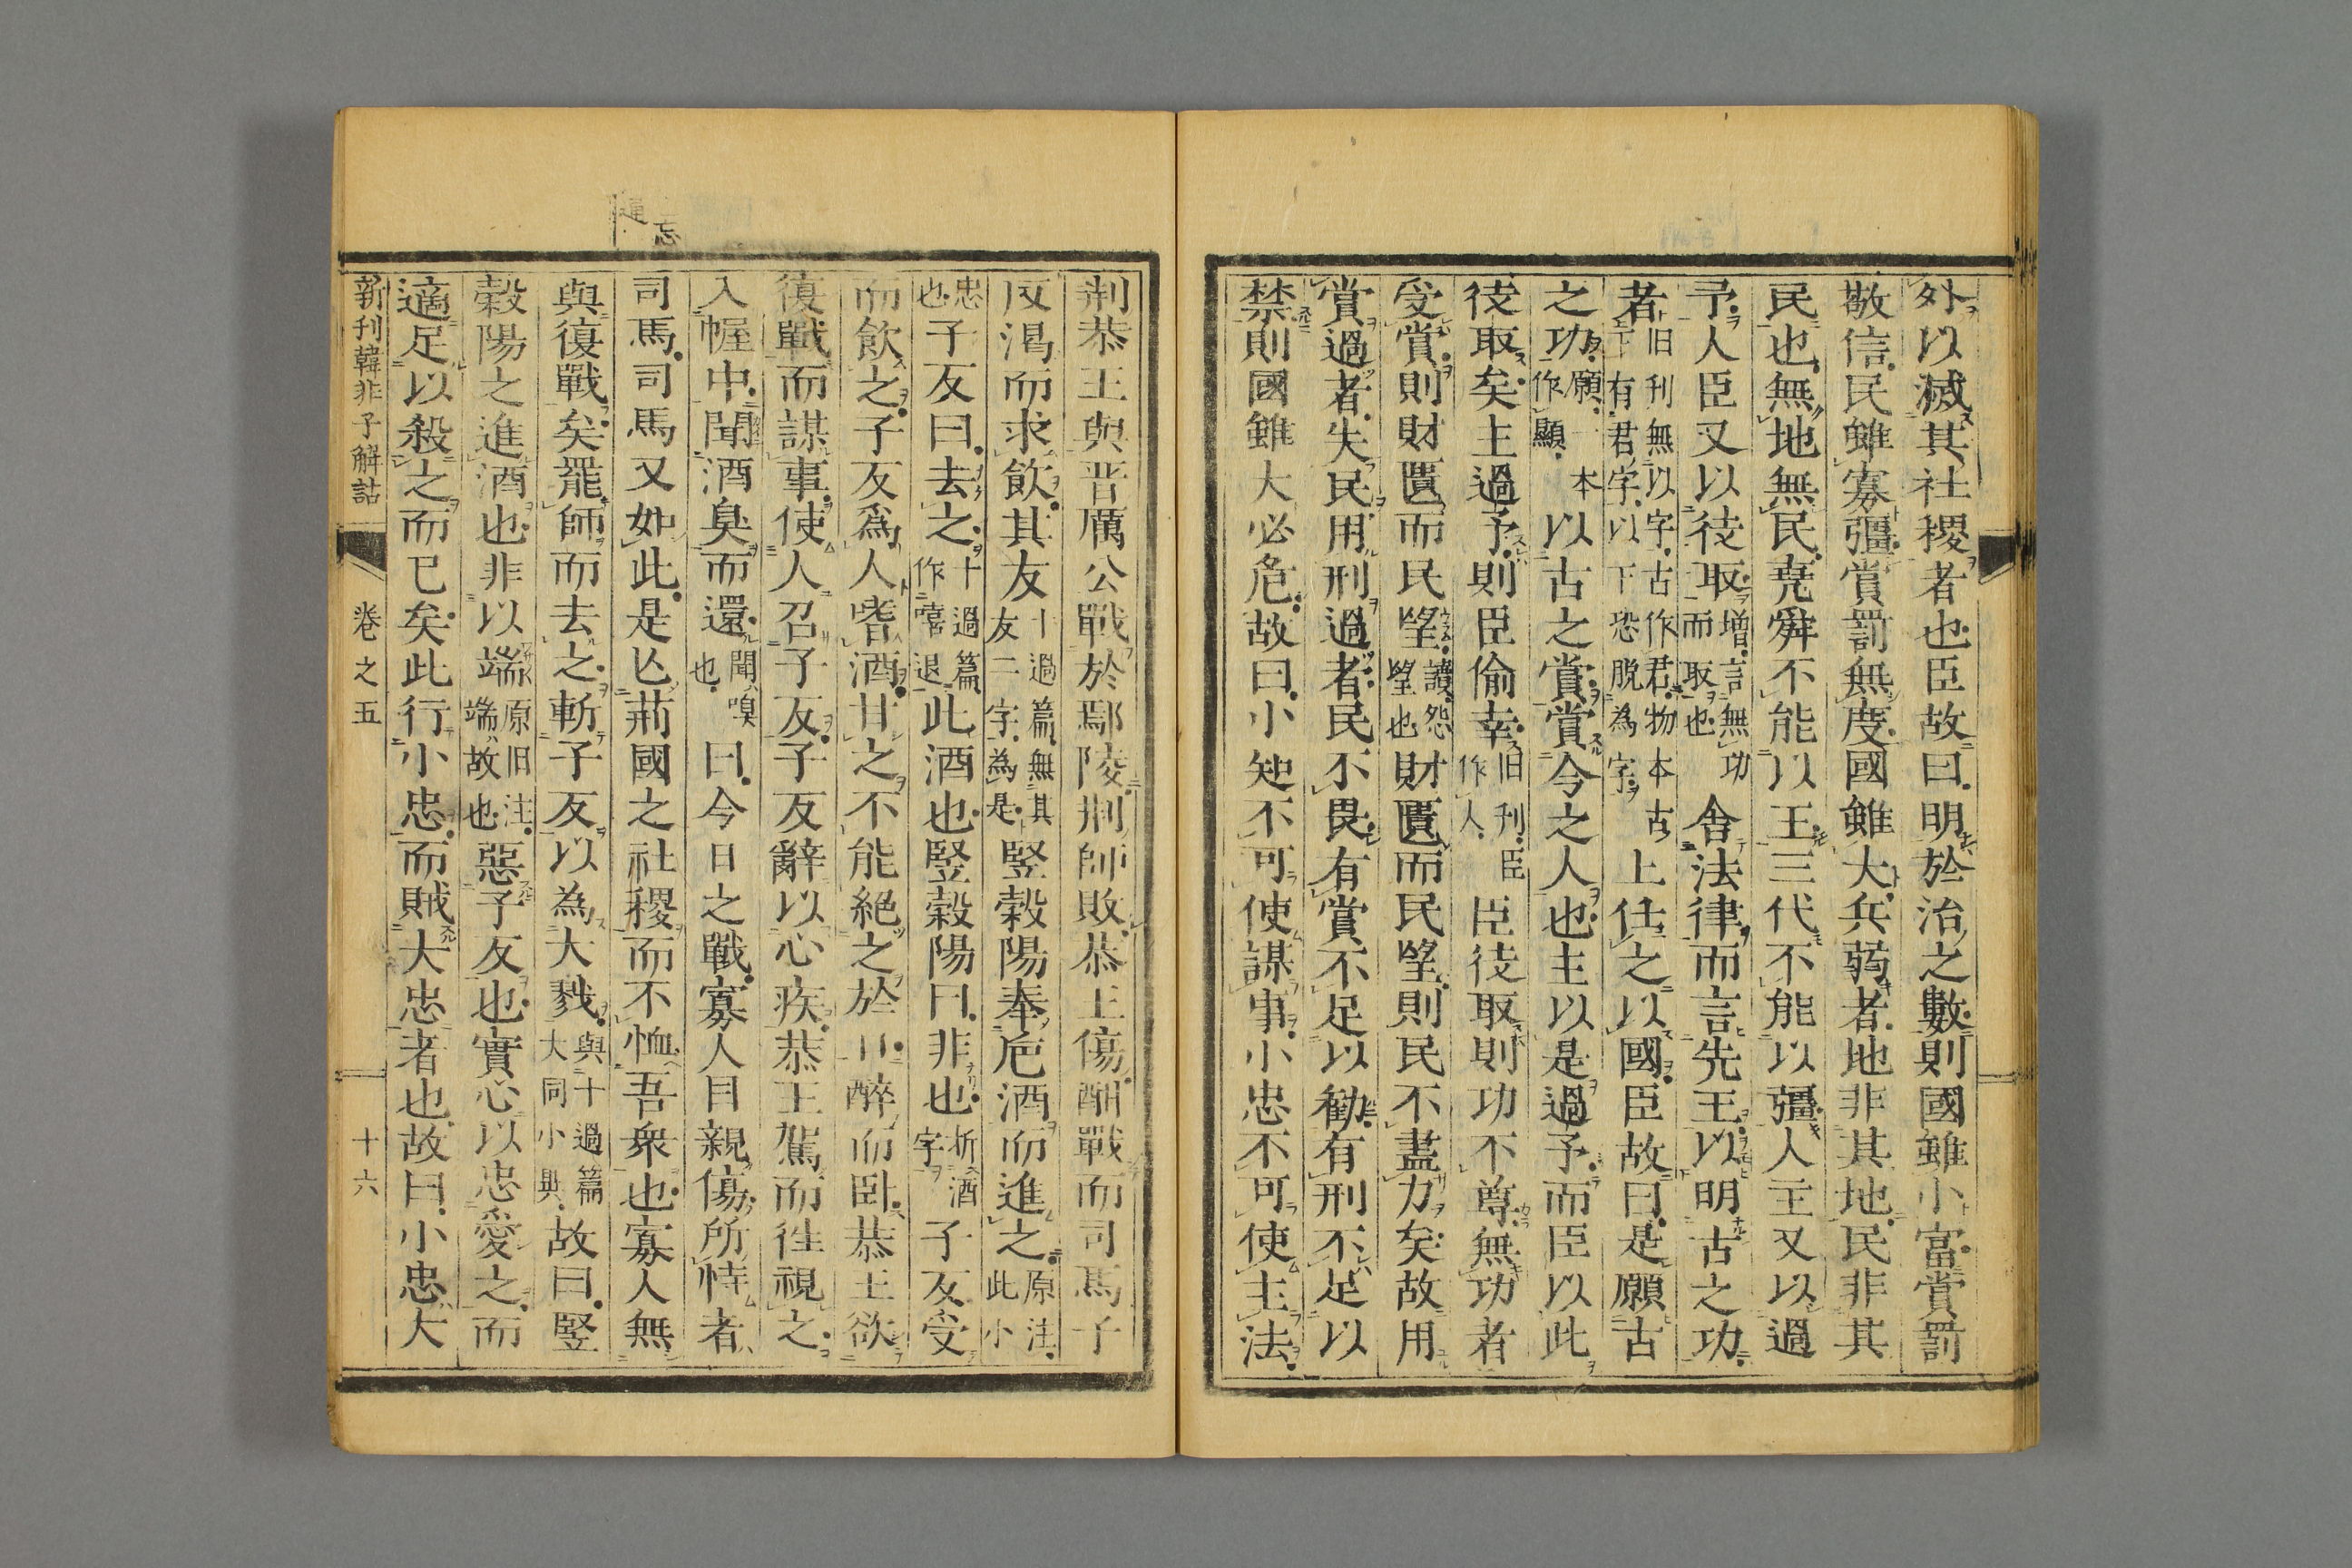 外以滅其社稷者也臣故曰明於治之數則國雖小富賞罰
敬信民雖寡彊賞罰無度國雖大兵弱者地非其地民非其
民也無地無民堯舜不能以王三代不能以彊人主又以過
予人臣又以徒取增言無功而取也舍法律而言先王以明古之功
者旧刊無以字古作君物本古下有君字以下恐脱為字上任之以國臣故曰是願古
之功願一本作顯以古之賞賞今之人也主以是過予而臣以此
徒取矣主過予則臣偷幸旧刊臣作人臣徒取則功不尊無功者
受賞則財匱而民望讀怨望也財匱而民望則民不盡力矣故用
賞過者失民用刑過者民不畏有賞不足以勸有刑不足以
禁則國雖大必危故曰小知不可使謀事小忠不可使主法
荆恭王與晋厲公戰於鄢陵荆師敗恭王傷酣戰而司馬子
反渴而求飲其友十過篇無其友二字為是竪穀陽奉卮酒而進之原注此小
忠也子反曰去之十過篇作嘻退此酒也竪穀陽曰非也折酒字子反受
而飲之子反爲人嗜酒甘之不能絕之於口醉而卧恭王欲
復戰而謀事使人召子反子反辭以心疾恭王駕而徃視之
入幄中聞酒臭而還聞嗅也曰今日之戰寡人目親傷所恃者
司馬司馬又如此是亾荊國之社稷而不恤吾衆也寡人無
與復戰矣罷師而去之斬子反以為大戮與十過篇大同小異故曰竪
穀陽之進酒也非以端原旧注端故也惡子反也實心以忠愛之而
適足以殺之而已矣此行小忠而賊大忠者也故曰小忠大
新刊韓非子解詁 卷之五 十六